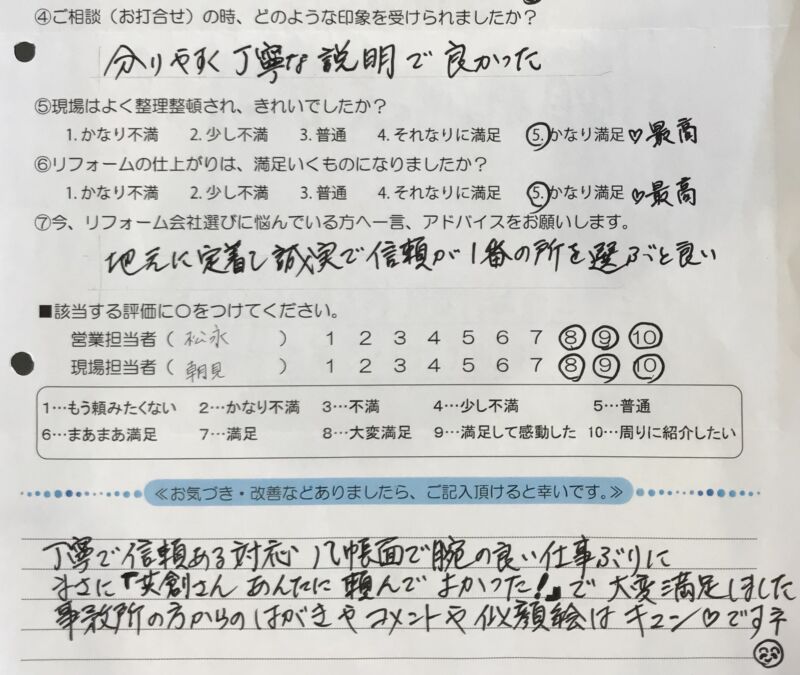 ④ご相談（お打合せ）の時、どのような印象を受けられましたか？
分りやすく丁寧な説明で良かった
⑤現場はよく整理整頓され、きれいでしたか？
1. かなり不満 2. 少し不満 3. 普通 4. それなりに満足 5. かなり満足♡最高
⑥リフォームの仕上がりは、満足いくものになりましたか？
1. かなり不満 2. 少し不満 3. 普通 4. それなりに満足 5. かなり満足♡最高
⑦今、リフォーム会社選びに悩んでいる方へ一言、アドバイスをお願いします。
地元に定着し誠実で信頼が1番の所を選ぶと良い
■該当する評価に〇をつけてください。
営業担当者（ 松永 ） 1 2 3 4 5 6 7 ⑧ ⑨ ⑩
現場担当者（ 朝見 ） 1 2 3 4 5 6 7 ⑧ ⑨ ⑩
1…もう頼みたくない 2…かなり不満 3…不満 4…少し不満 5…普通
6…まあまあ満足 7…満足 8…大変満足 9…満足して感動した 10…周りに紹介したい
≪お気づき・改善などありましたら、ご記入頂けると幸いです。≫
丁寧で信頼ある対応 几帳面で腕の良い仕事ぶりに
まさに『共創さん あんたに頼んでよかった！』で大変満足しました
事務所の方からのはがきやコメントや似顔絵はキュン♡ですネ